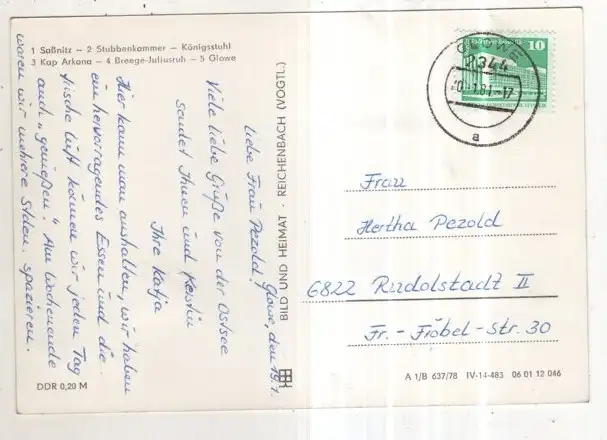 1 Saßnitz – 2 Stubbenkammer – Königsstuhl
3 Kap Arkona – 4 Breege-Juliusruh – 5 Glowe
Glowe, den 19.1.
Liebe Frau Pezold!
Viele liebe Grüße von der Ostsee
sendet Ihnen und Kerstin
Ihre Katja
Hier kann man aushalten, wir haben
ein hervorragendes Essen und die
frische Luft können wir jeden Tag
auch „genießen“. Am Wochenende
waren wir mehrere Stden. spazieren.
DDR 0,20 M
BILD UND HEIMAT · REICHENBACH (VOGTL.)
10
GLOWE
2344
.81-17
a
Frau
Hertha Pezold
6822 Rudolstadt II
Fr.-Fröbel-Str. 30
A 1/B 637/78 IV-14-483 06 01 12 046